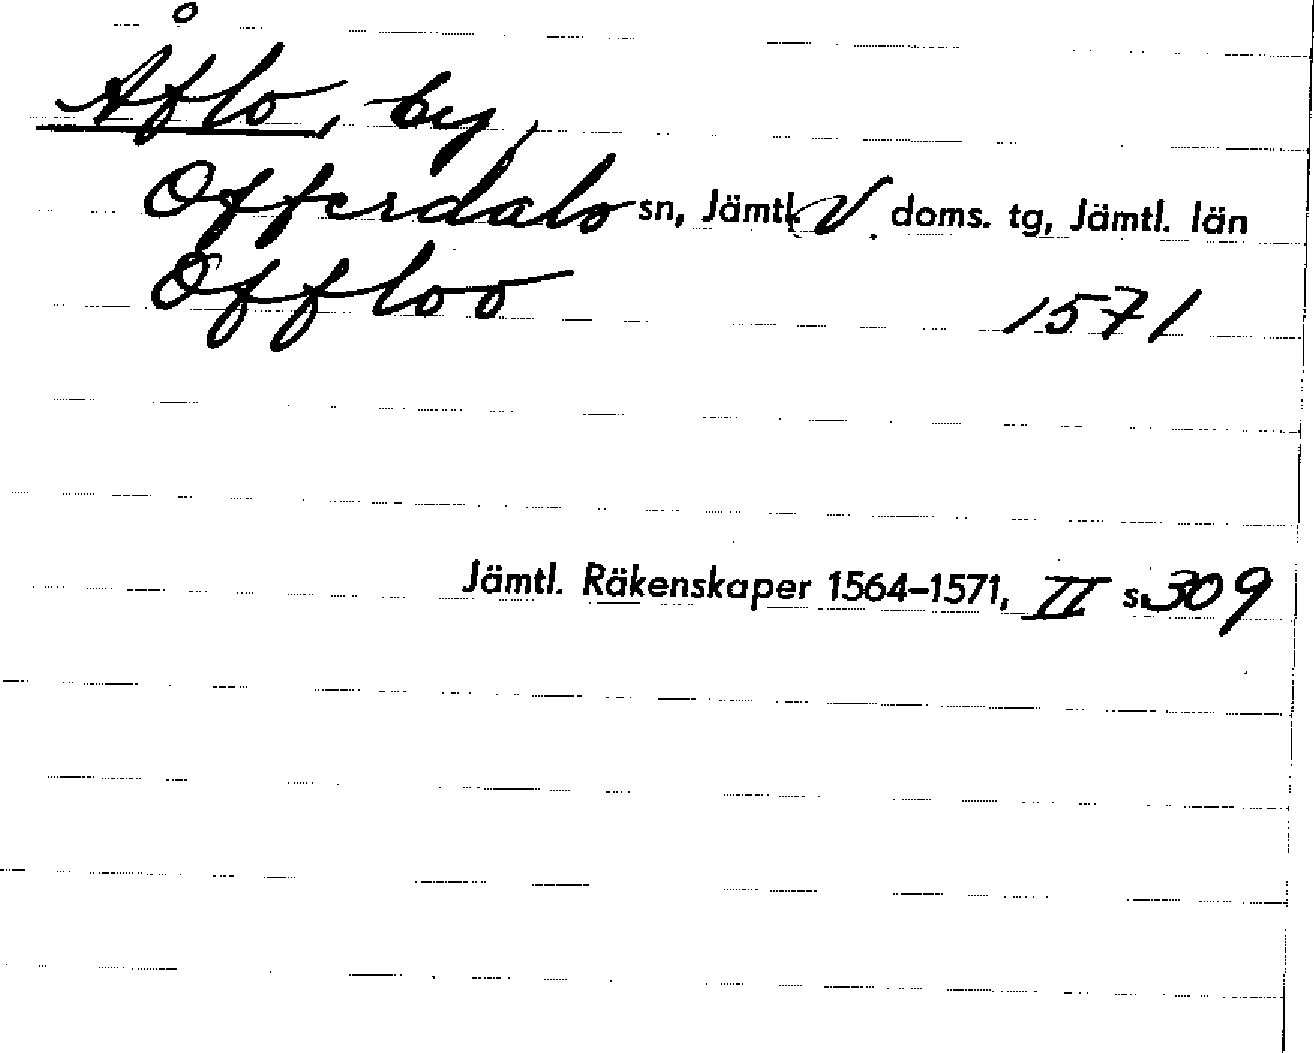 Åflo, by,
Offerdals sn, Jämtl. V. doms. tg, Jämtl. län
Offloo 1571
Jämtl. Räkenskaper 1564–1571, II s. 309